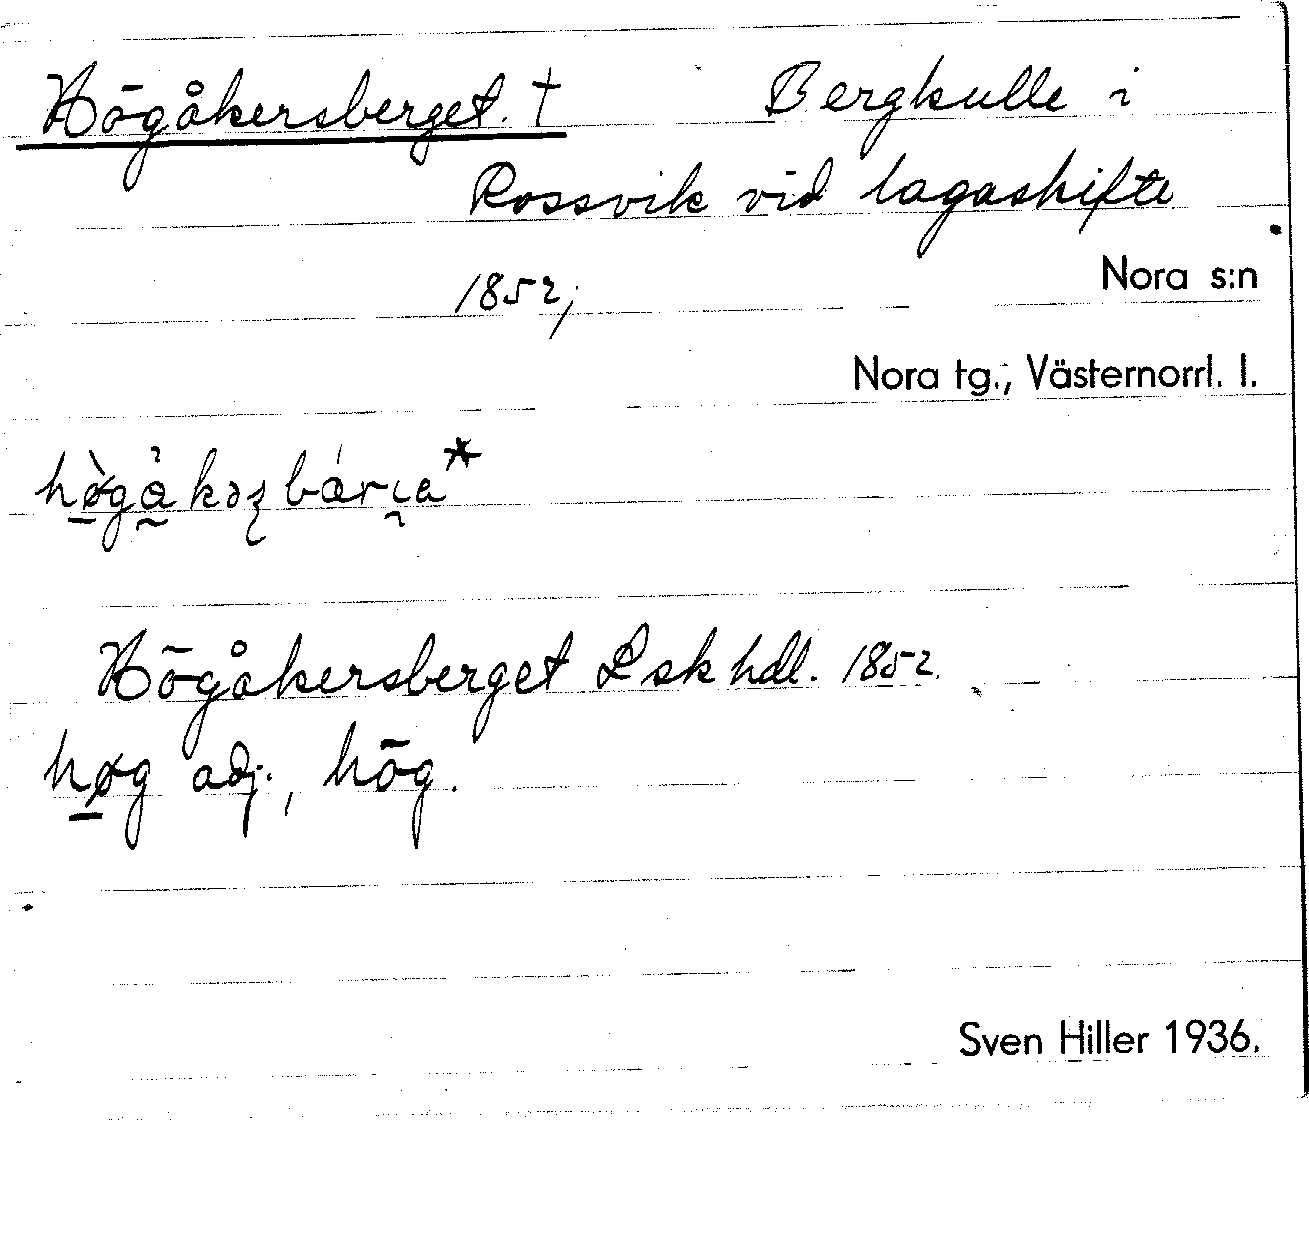 Högåkersberget. † Bergkulle i
Rossvik vid lagaskifte
1852;
Nora s:n
Nora tg., Västernorrl. l.
Högåkersberget Lskhdl. 1852.
høg adj., hög.
Sven Hiller 1936.